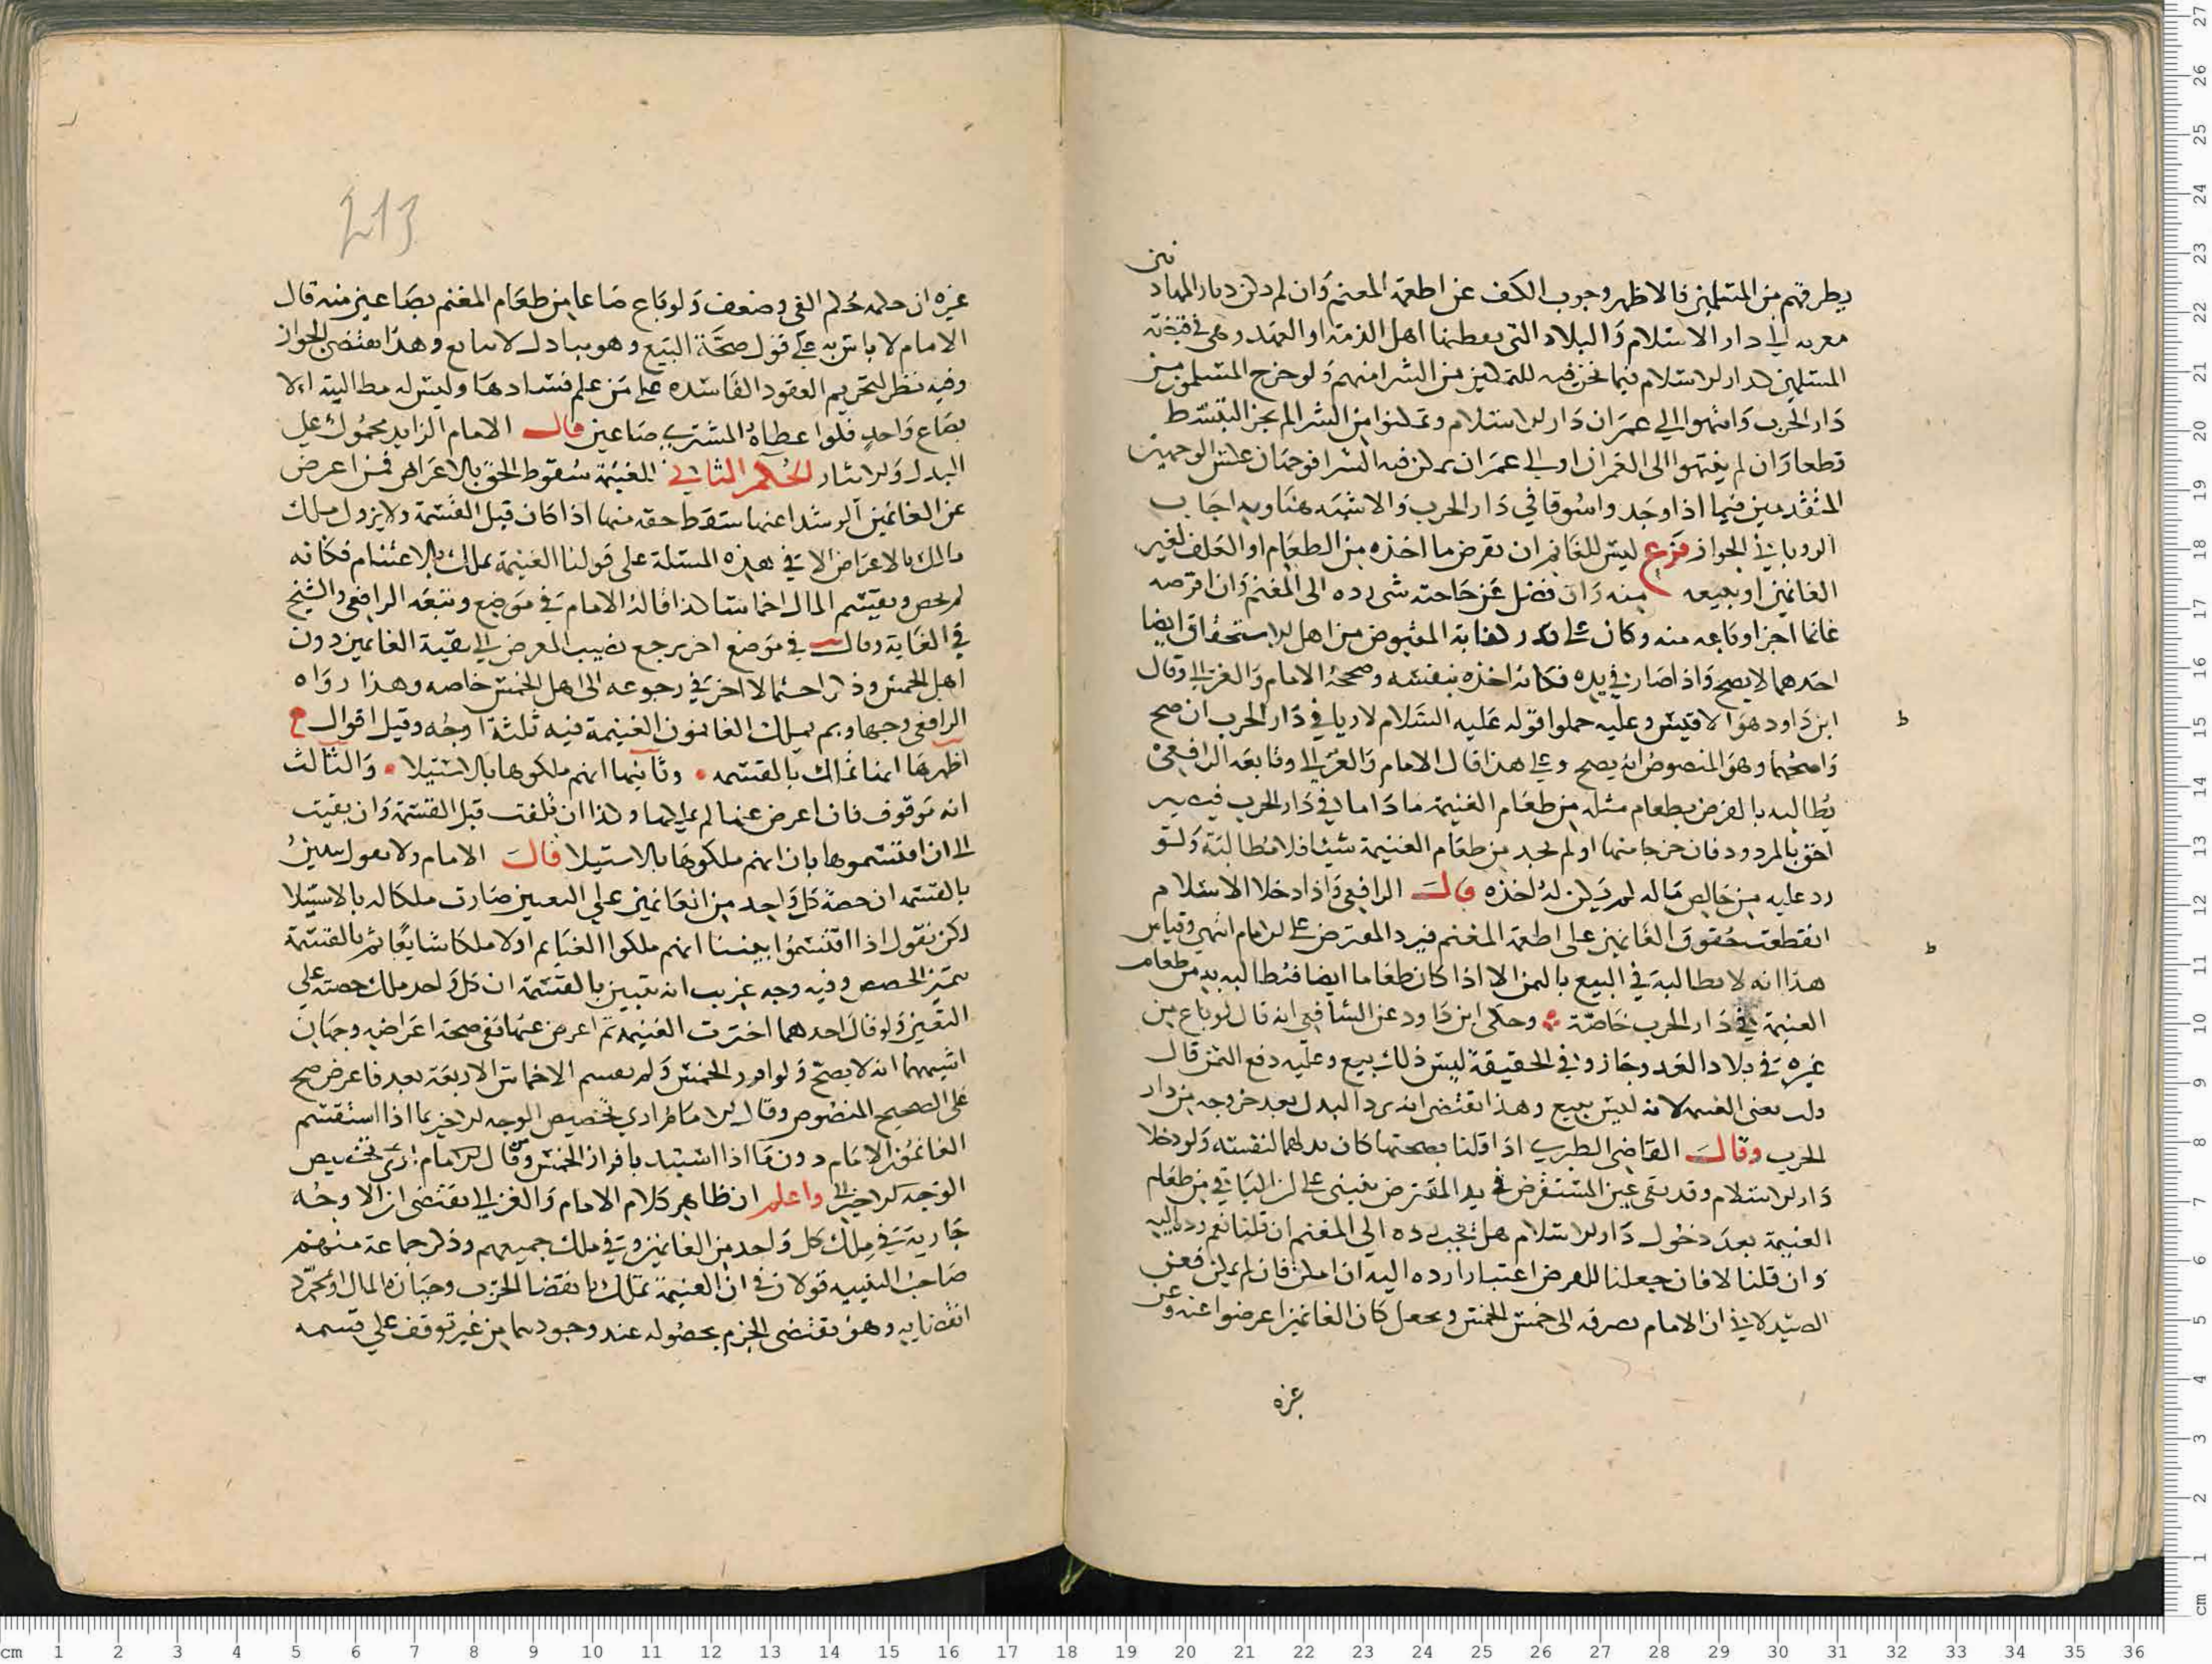 يطرقهم من المسلمين فالاظهر وجوب الكف عن اطعمة المغنم وان لم دار المهادنين
الى دار الاسلام والبلاد التي يعطنها اهل الذمة او العهد وهي في قبضة
المسلمين كدار الاسلام فيما نحن فيه للتمكين من الشرا منهم ولو خرج المسلمون من
دار الحرب وانتهوا الى عمران دار الاسلام وتمكنوا من الشرا لم يجز التبسط
قطعا وان لم ينتهوا الى العمران او الى عمران يمكن فيه الشرا فوجهان عكس الوجهين
المتقدمين فيما اذا وجدوا سوقا في دار الحرب والاشبه هنا وبه اجاب
الروياني الجواز فرع ليس للغانم ان يقرض ما اخذه من الطعام او العلف لغير
الغانمين او يبيعه منه وان فضل عن حاجته شي رده الى المغنم وان اقرضه
غانما اخر او باعه منه وكان على قدر كفاية المقبوض من اهل الاستحقاق ايضا
احدهما لا يصح واذا صار في يده فكانه اخذه بنفسه وصححه الامام والغزالي وقال
ابن داود هو الاقيس وعليه حملوا قوله عليه السلام لا ربا في دار الحرب ان صح
واصحهما وهو المنصوص انه يصح وعلى هذا قال الامام والغزالي وتابعه الرافعي
يطالبه بالقرض بطعام مثله من طعام الغنيمة ما داما في دار الحرب فيصير
احق بالمردود فان خرجا منها او لم يجد من طعام الغنيمة شيئا فلا مطالبة ولو
رد عليه من خالص ماله لم يكن له اخذه قال الرافعي واذا دخلا الاسلام
انقطعت حقوق الغانمين على اطعمة المغنم فيرد المقترض على الامام انتهى وقياس
هذا انه لا مطالبة في البيع بالثمن الا اذا كان طعاما ايضا فيطالبه به من طعام
الغنيمة في دار الحرب خاصة وحكى ابن داود عن الشافعي انه قال لو باع من
غيره في بلاد العدو جاز وفي الحقيقة ليس ذلك ببيع وعليه دفع الثمن قال
لانه ليس ببيع وهذا يقتضي انه يرد البدل بعد خروجه من دار
الحرب وقال القاضي الطبري اذا قلنا بصحتها كان بدلها لنفسه ولو دخلا
دار الاسلام وقد بقي عين المستقرض في يد المقترض فيبنى على ان الباقي من طعام
الغنيمة بعد دخول دار الاسلام هل يجب رده الى المغنم ان قلنا نعم رده اليه
وان قلنا لا فان جعلنا للقرض اعتبارا رده اليه ان امكن فان لم يكن فعن
الصيدلاني ان الامام يصرفه الى خمس الخمس ويجعل كان الغانمين اعرضوا عنه وعن
غيره
ط
ط
213
غيره ان حكمه حكم الفي وضعف ولو باع صاعا من طعام المغنم بصاعين منه قال
الامام لا باس به على قول صحة البيع وهو تبادل لا تبايع وهذا يقتضي الجواز
وفيه نظر لتحريم العقود الفاسدة على من علم فسادها وليس له مطالبته الا
بصاع واحد فلو اعطاه المشتري صاعين قال الامام الزايد محمول على
البدل والايثار الحكم الثاني الغنيمة سقوط الحق بالاعراض فمن اعرض
عن الغانمين الرشدا عنها سقط حقه منها اذا كان قبل القسمة ولا يزول ملك
مالك بالاعراض الا في هذه المسئلة على قولنا الغنيمة تملك بالاغتنام فكانه
لم يحضر ويقسم المال اخماسا كذا قاله الامام في موضع وتبعه الرافعي والشيخ
في الغاية وقال في موضع اخر يرجع نصيب المعرض الى بقية الغانمين دون
اهل الخمس وذكر احتمالا اخر في رجوعه الى اهل الخمس خاصة وهذا رواه
الرافعي وجها وبم يملك الغانمون الغنيمة فيه ثلثة اوجه وقيل اقوال
اظهرها انها تملك بالقسمة وثانيها انهم ملكوها بالاستيلا والثالث
انه موقوف فان اعرض عنها لم يملكها وكذا ان تلفت قبل القسمة وان بقيت
الى ان اقتسموها بان انهم ملكوها بالاستيلا قال الامام ولا نقول يتبين
بالقسمة ان حصة كل واحد من الغانمين على التعيين صارت ملكا له بالاستيلا
لكن نقول اذا اقتسموا تبينا انهم ملكوا الغنايم اولا ملكا شايعا ثم بالقسمة
تتميز الحصص وفيه وجه غريب انه يتبين بالقسمة ان كل واحد ملك حصته على
التعيين ولو قال احدهما اخترت الغنيمة ثم اعرض عنها ففي صحة اعراضه وجهان
اشبههما انه لا يصح ولو افرد الخمس ولم يقسم الاخماس الاربعة بعد فاعرض صح
على الصحيح المنصوص وقال الامام ارى تخصيص الوجه الاخير بما اذا استقسم
الغانمون الامام دون ما اذا استبد بافراز الخمس وقال الامام ارى تخصيص
الوجه الاخير واعلم ان ظاهر كلام الامام والغزالي يقتضي ان الاوجه
جارية في ملك كل واحد من الغانمين وفي ملك جميعهم وذكر جماعة منهم
صاحب التنبيه قولان في ان الغنيمة تملك بانقضا الحرب وحيازة المال او بمجرد
انقضايه وهو يقتضي الجزم بحصوله عند وجودهما من غير توقف على قسمه